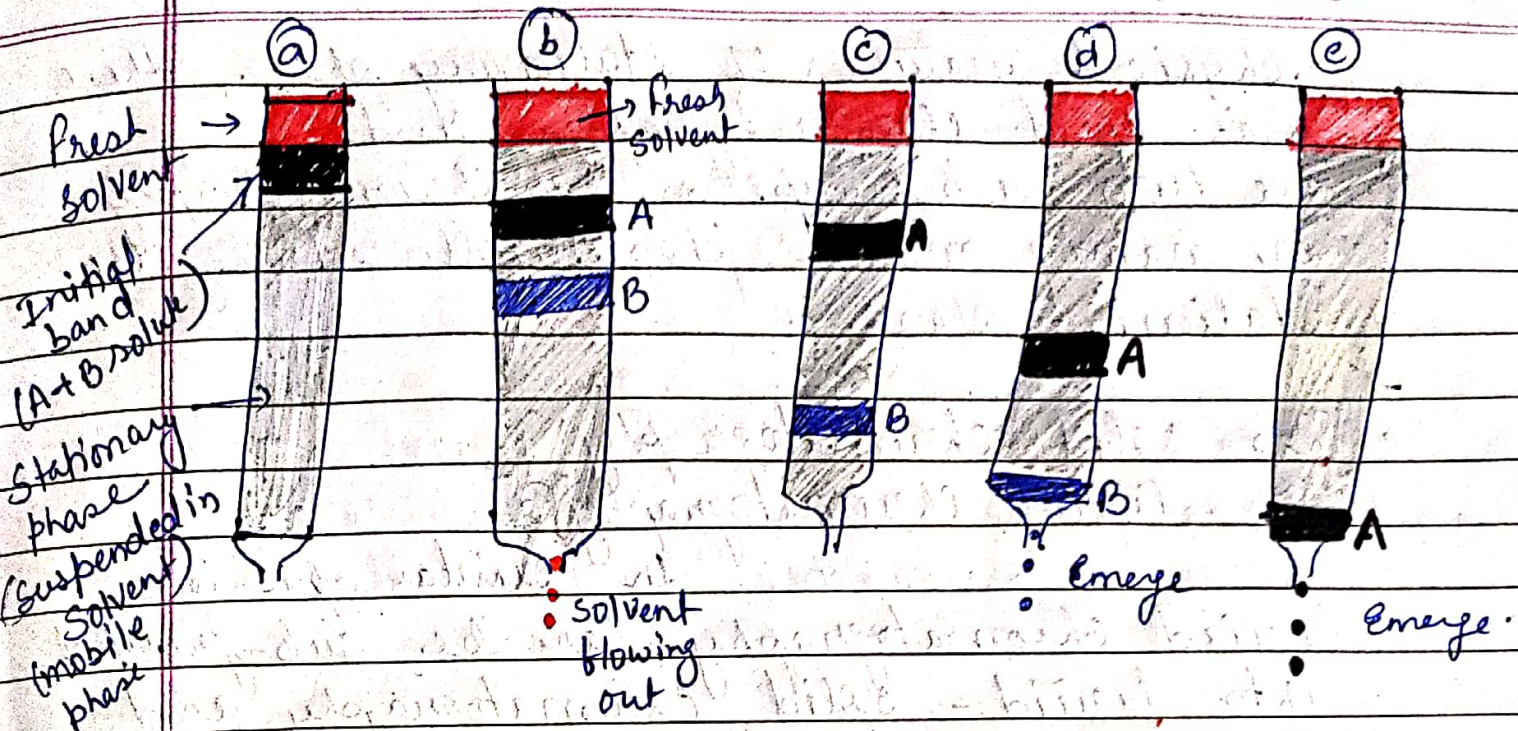 a
b
c
d
e
Fresh
solvent
Initial
band
(A+B solute)
Stationary
phase
(suspended in
Solvent)
(mobile
phase.
Fresh
solvent
A
B
Solvent
flowing
out
A
B
A
B
Emerge
A
Emerge.